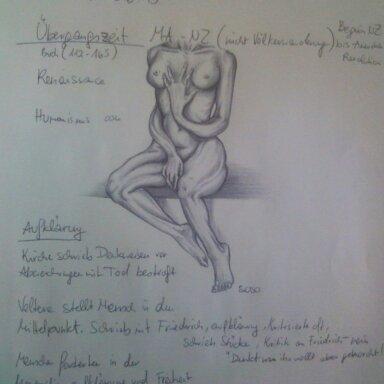 Übergangszeit MA - NZ (nicht Völkerwanderung) Beginn NZ
bis
Revolution
Buch (142-163)
Renaissance
Humanismus
Aufklärung
Kirche schrieb Denkweisen vor
Abweichungen mit Tod bestraft
SOSO
Voltaire stellt Mensch in den
Mittelpunkt. Schrieb mit Friedrich, aufklärung, kritisierte oft,
schrieb Stücke, Kritik an Friedrich
"Denkt was ihr wollt aber gehorcht!"
Menschen forderten in der
und Freiheit